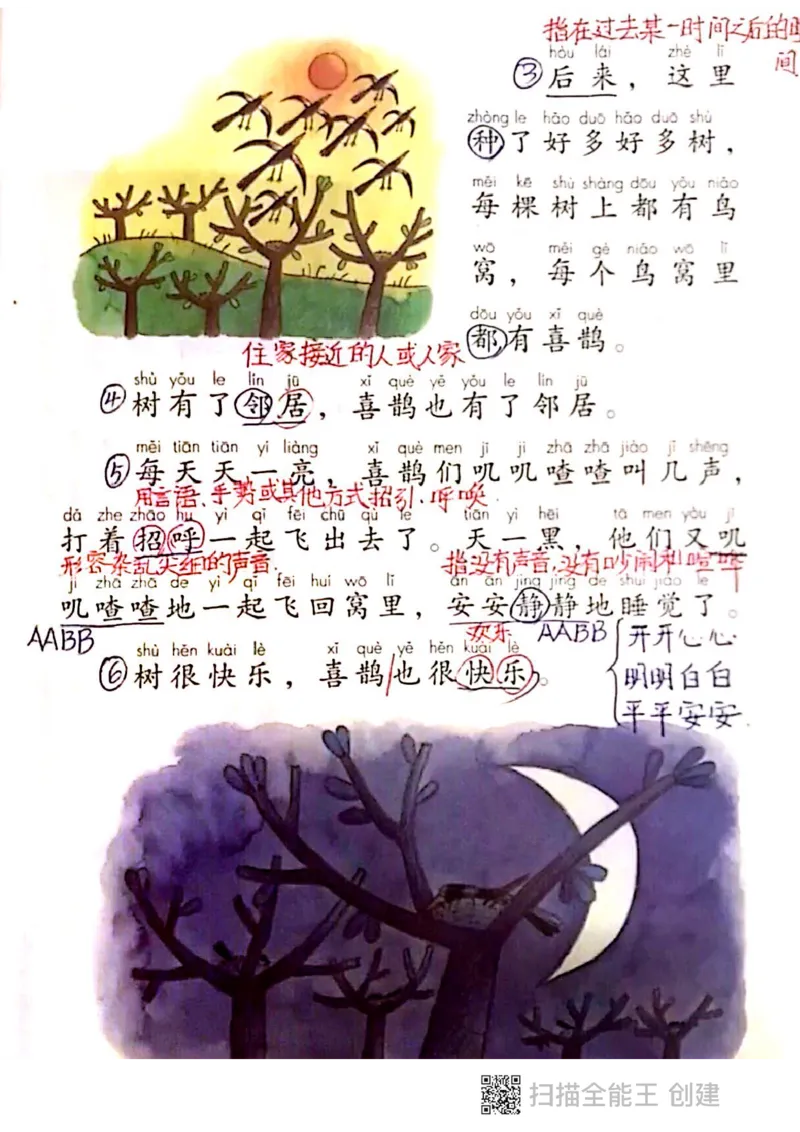 指在过去某一时间之后的时
间
hòu lái zhè lǐ
③后来，这里
zhòng le hǎo duō hǎo duō shù
种了好多好多树，
měi kē shù shàng dōu yǒu niǎo
每棵树上都有鸟
wō měi gè niǎo wō lǐ
窝，每个鸟窝里
dōu yǒu xǐ què
都有喜鹊。
住家接近的人或人家
shù yǒu le lín jū xǐ què yě yǒu le lín jū
④树有了邻居，喜鹊也有了邻居。
měi tiān tiān yí liàng xǐ què men jī jī zhā zhā jiào jǐ shēng
⑤每天天一亮，喜鹊们叽叽喳喳叫几声，
用言语、手势或其他方式招引，呼唤
dǎ zhe zhāo hu yì qǐ fēi chū qù le tiān yì hēi tā men yòu jī
打着招呼一起飞出去了。天一黑，他们又叽
形容杂乱尖细的声音. 指没有声音，没有吵闹和喧哗
jī zhā zhā de yì qǐ fēi huí wō lǐ ān ān jìng jìng de shuì jiào le
叽喳喳地一起飞回窝里，安安静静地睡觉了。
AABB 欢乐 AABB 开开心心
shù hěn kuài lè xǐ què yě hěn kuài lè
⑥树很快乐，喜鹊也很快乐。 明明白白
平平安安
扫描全能王 创建